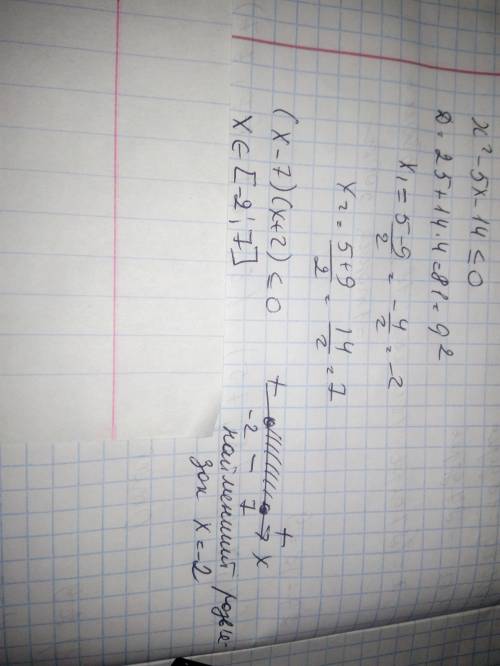 x² - 5x - 14 ≤ 0
D = 25 + 14·4 = 81 = 9²
x₁ = (5-9)/2 = -4/2 = -2
x₂ = (5+9)/2 = 14/2 = 7
(x-7)(x+2) ≤ 0
x ∈ [-2; 7]
+ - +
-2 7 x
найменший розв'я-
зок x = -2